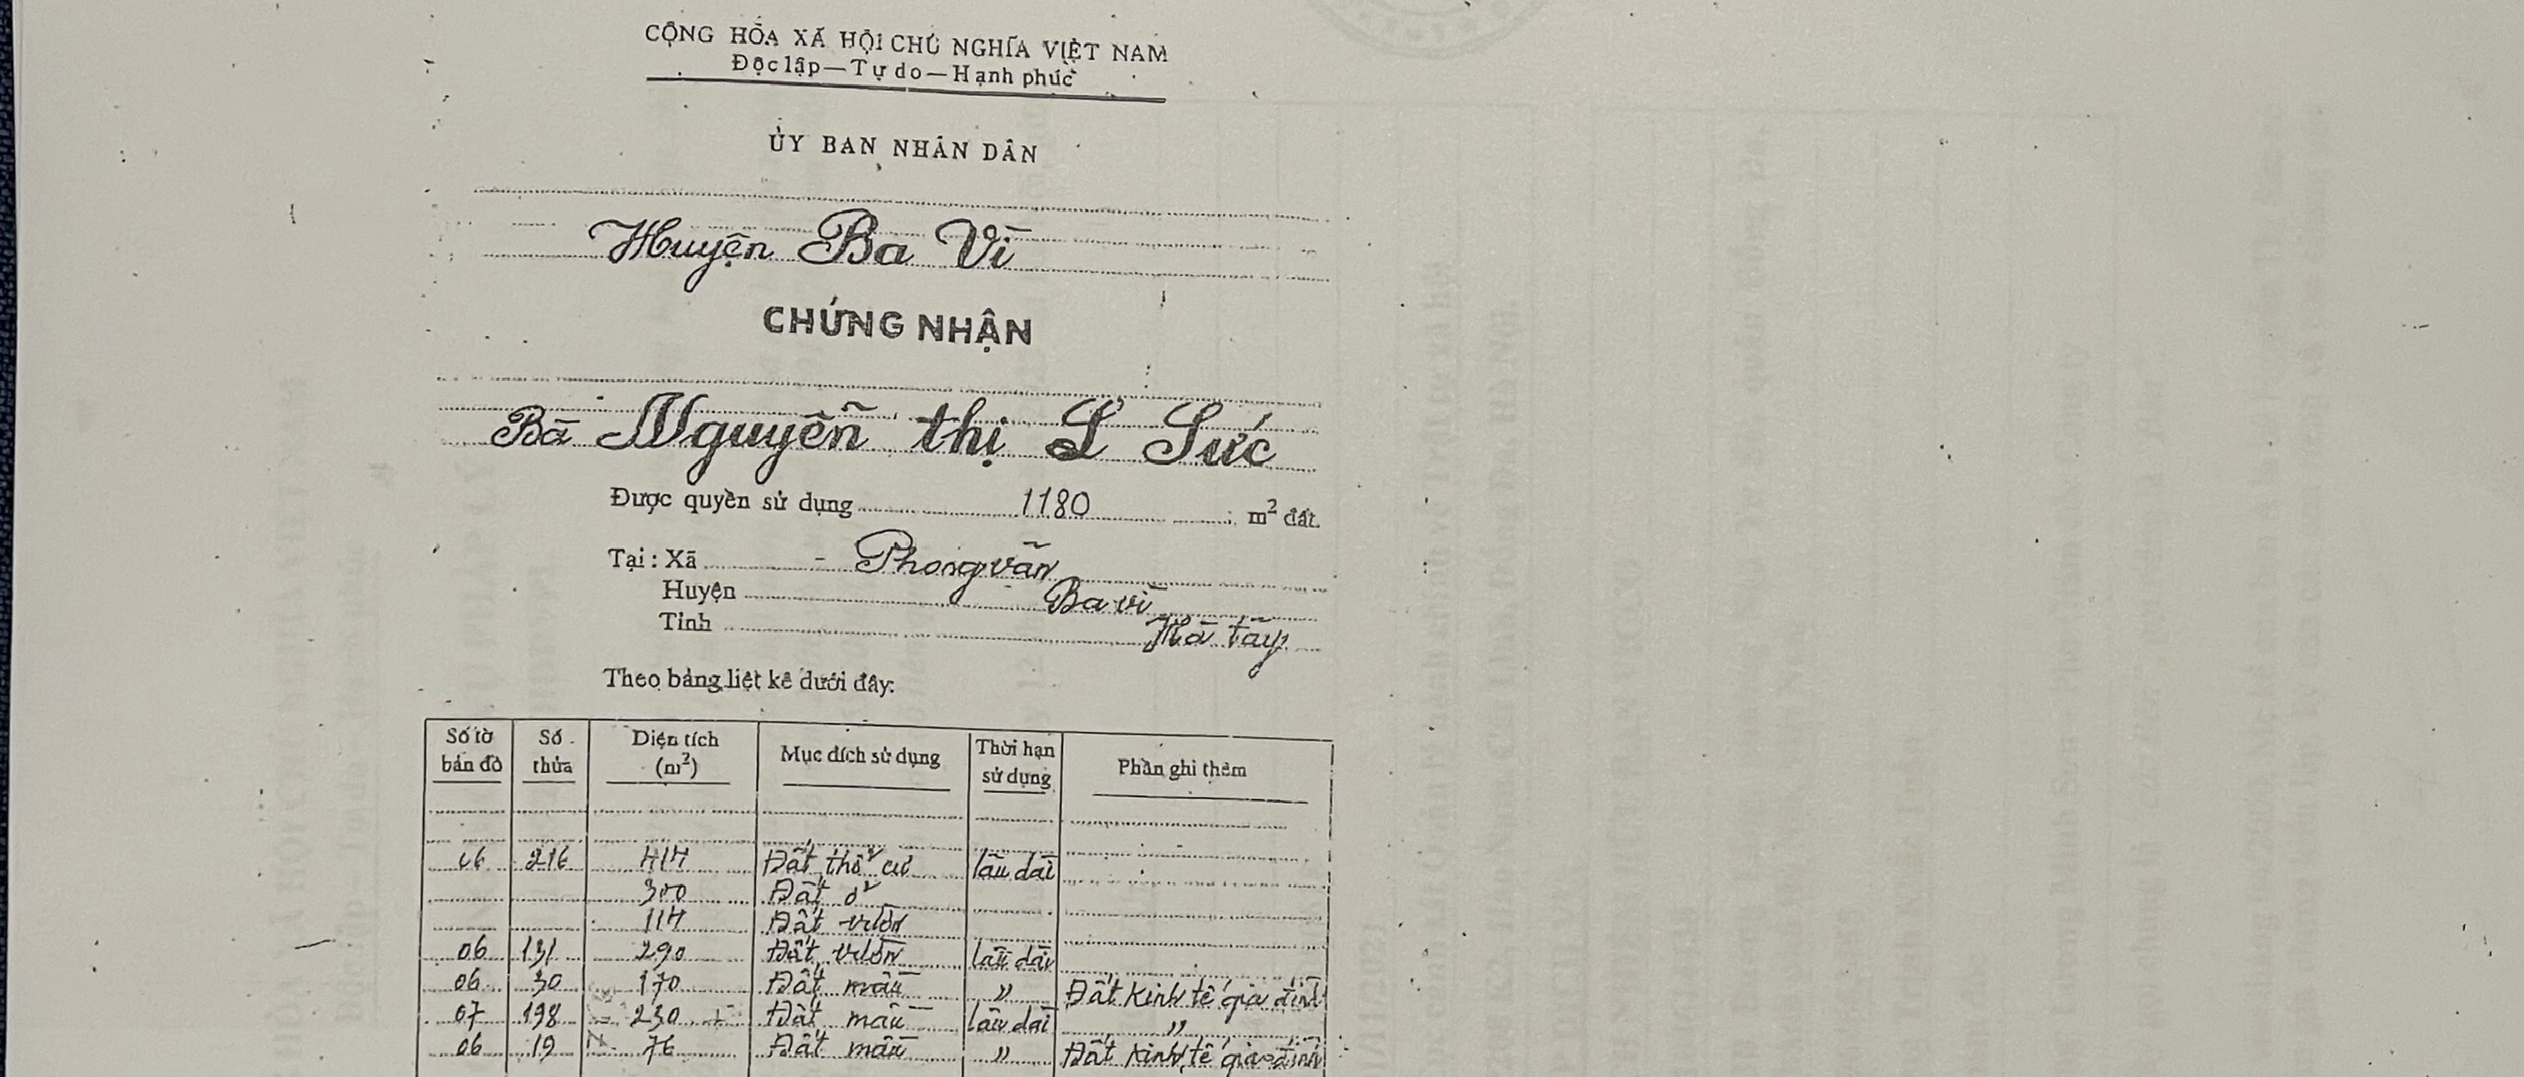 CỘNG HÒA XÃ HỘI CHỦ NGHĨA VIỆT NAM
Độc lập—Tự do—Hạnh phúc
ỦY BAN NHÂN DÂN
Huyện Ba Vì
CHỨNG NHẬN
Bà Nguyễn thị Sức
Được quyền sử dụng 1180 m² đất.
Tại: Xã - Phong vân
Huyện Ba vì
Tỉnh Hà tây
Theo bảng liệt kê dưới đây:
Số tờ bản đồ Số thửa Diện tích (m²) Mục đích sử dụng Thời hạn sử dụng Phần ghi thêm
06 216 414 Đất thổ cư lâu dài
300 Đất ở
114 Đất vườn
06 131 290 Đất vườn lâu dài
06 30 170 Đất màu " Đất kinh tế gia đình
07 198 230 Đất màu lâu dài "
06 19 76 Đất màu " Đất kinh tế gia đình